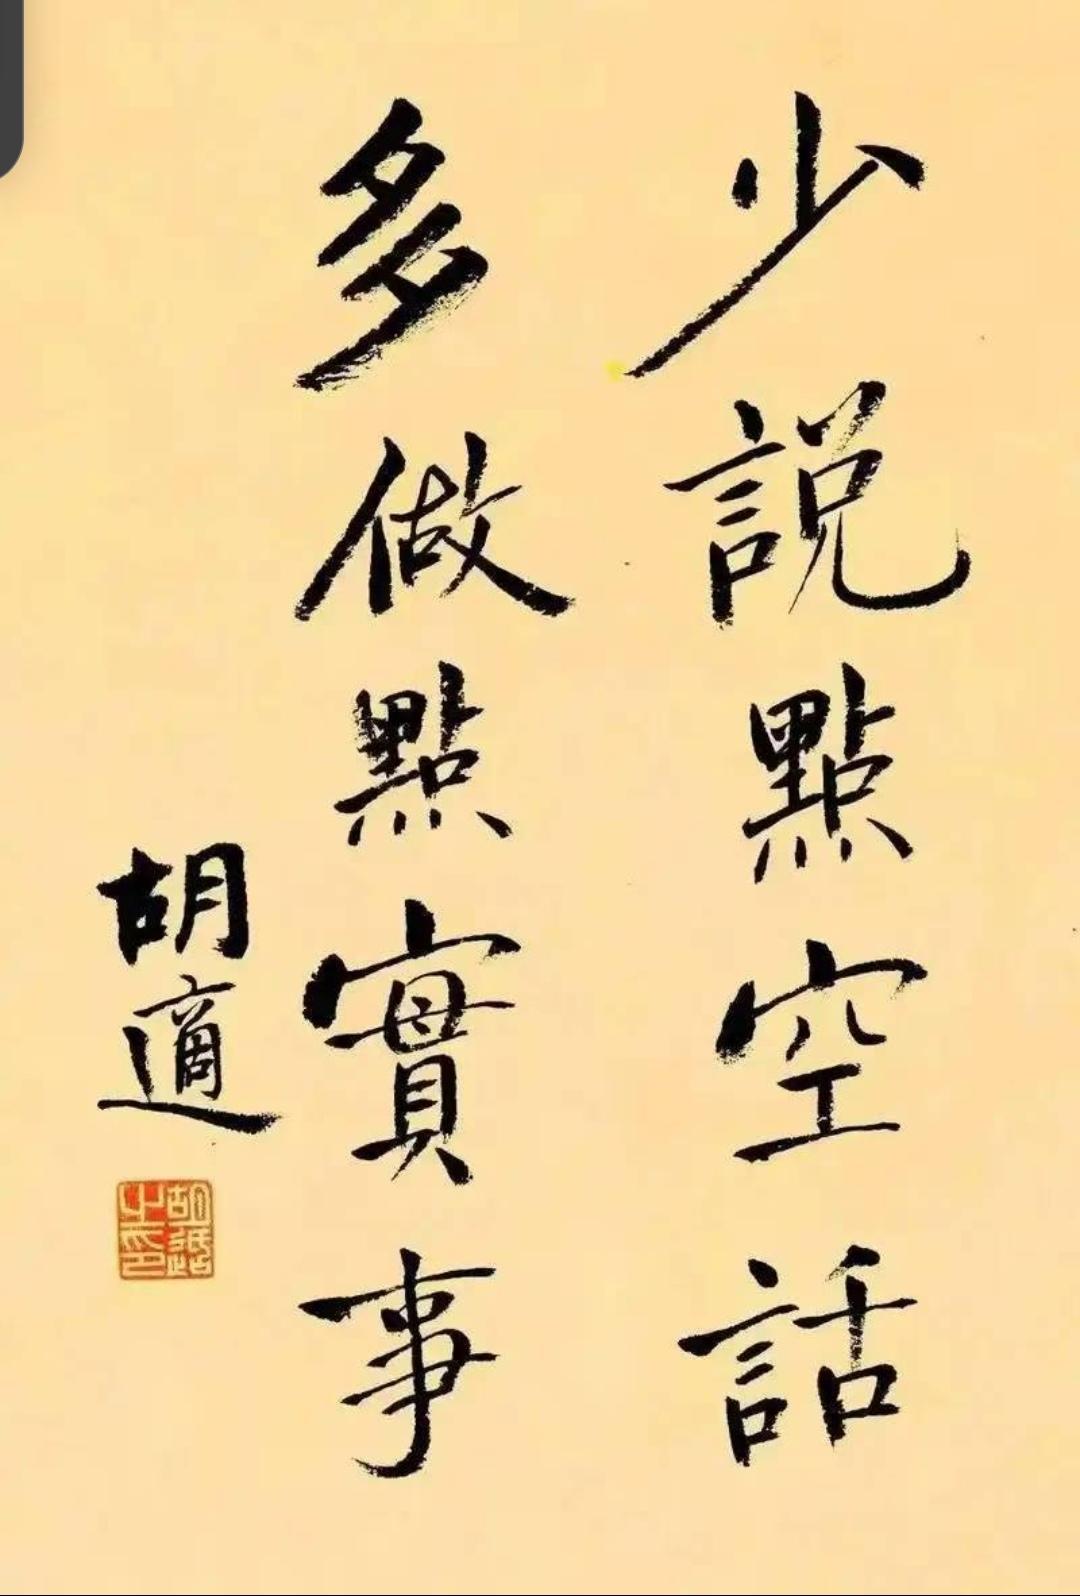 少説點空話
多做點實事
胡適
胡適之印